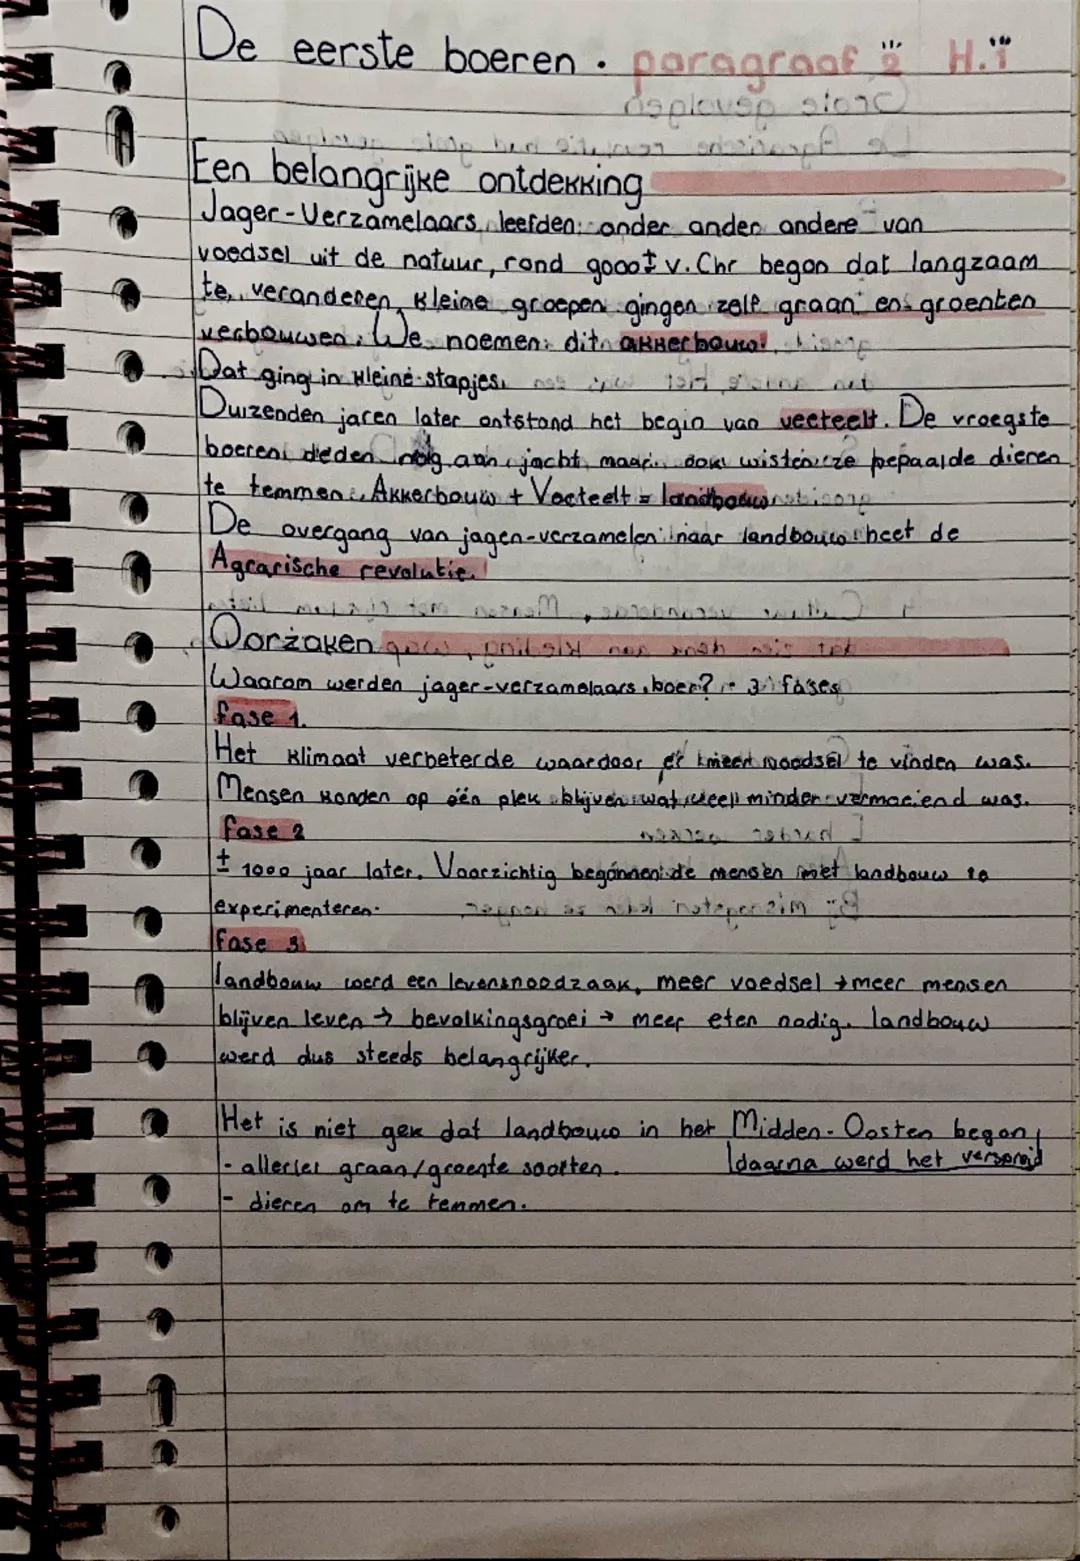 De eerste boeren. paragraaf "2" H."1"
Een belangrijke ontdekking
Jager-Verzamelaars leefden onder ander andere van
voedsel uit de natuur, rond 9000± v.Chr begon dat langzaam
te veranderen, kleine groepen gingen zelf graan en groenten
verbouwen. We noemen dit akkerbouw.
Dat ging in kleine stapjes.
Duizenden jaren later ontstond het begin van veeteelt. De vroegste
boeren deden nog aan jacht, maar ook wisten ze bepaalde dieren
te temmen. Akkerbouw + Veeteelt = landbouw
De overgang van jagen-verzamelen naar landbouw heet de
Agrarische revolutie.
Oorzaken
Waarom werden jager-verzamelaars boer? - 3 fases
fase 1.
Het klimaat verbeterde waardoor er meer voedsel te vinden was.
Mensen konden op één plek blijven wat veel minder vermoeiend was.
fase 2
± 1000 jaar later. Voorzichtig begonnen de mensen met landbouw te
experimenteren.
fase 3
landbouw werd een levensnoodzaak, meer voedsel → meer mensen
blijven leven → bevolkingsgroei → meer eten nodig. landbouw
werd dus steeds belangrijker.
Het is niet gek dat landbouw in het Midden-Oosten begon,
- allerlei graan/groente soorten.
daarna werd het verspreid
- dieren om te temmen.